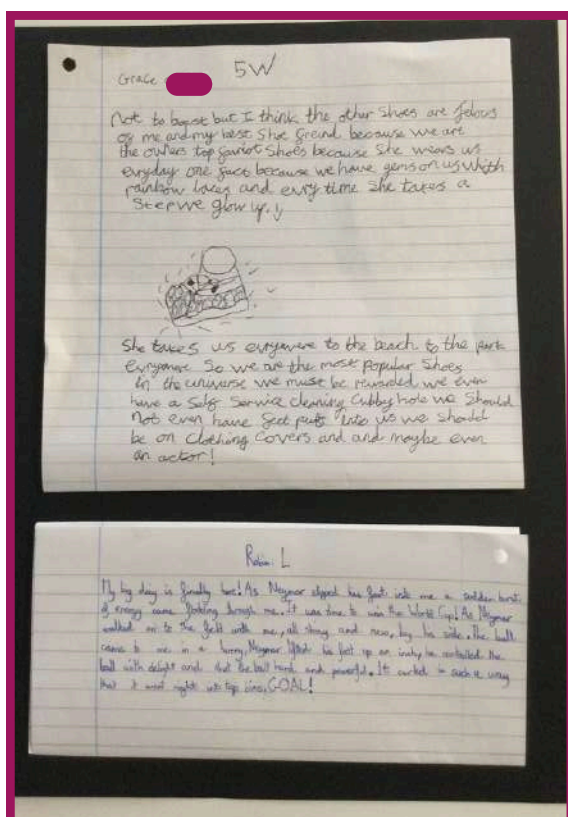 Grace 5W
Not to bogst but I think the other shoes are Jelous
of me and my best shoe freind because we are
the owners top faviot shoes because she wears us
evryday one fact because we have gems on us whith
rainbow laces and evry time she takes a
step we glow up.!,
She takes us evrywere to the beach to the park
Evrywere so we are the most popular shoes
in the universe we must be rewarded we even
have a self service cleaning cubby hole we should
not even have feet puts into us we should
be on clothing covers and and maybe even
an actor!
Robin. L
My big day is finally here! As Neymar slipped his foot into me a sudden burst
of energy came flooding through me. It was time to win the World Cup! As Neymar
walked on to the field with me, all strong and new, by his side. The ball
came to me in a hurry, Neymar lifted his foot up an inch, he controlled the
ball with delight and shot the ball hard and powerful. It curled in such a way
that it went right into top bins, GOAL!